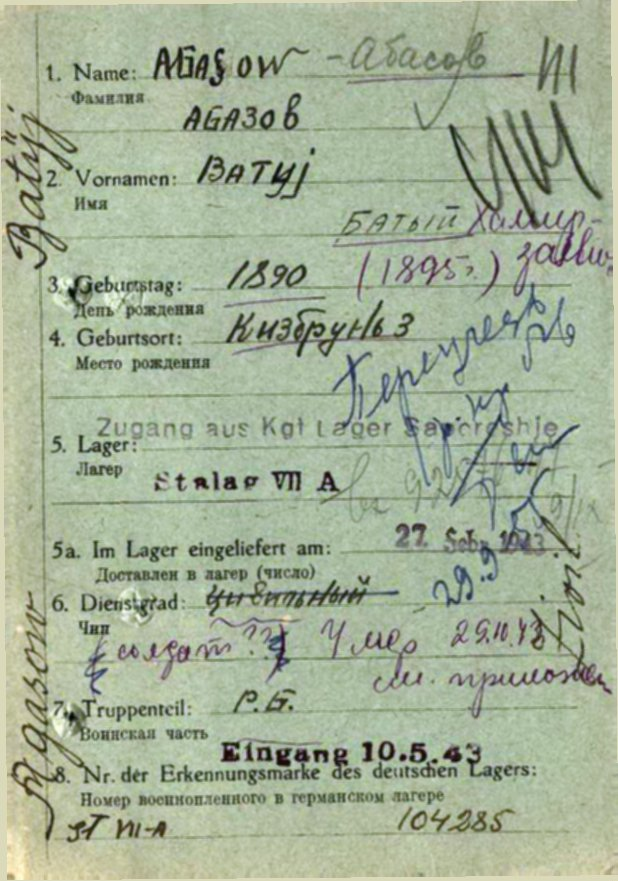 1. Name: AGASOW - Абасов III
Фамилия
АГАЗОВ
2. Vornamen: BATYj
Имя
БАТЫЙ
3. Geburtstag: 1890 (1895г.)
День рождения
4. Geburtsort: Кизбрунь 3
Место рождения
Zugang aus Kgf Lager Saporoshje
5. Lager:
Лагерь
Stalag VII A
5a. Im Lager eingeliefert am: 27. 1943
Доставлен в лагерь (число)
29.9
6. Dienstgrad: цивильный
Чин
(солдат ??) Умер 29.10.43
см. приложен
7. Truppenteil: Р.Б.
Воинская часть
Eingang 10.5.43
8. Nr. der Erkennungsmarke des deutschen Lagers:
Номер военнопленного в германском лагере
ST VII-A 104285
Batyj
Agasow